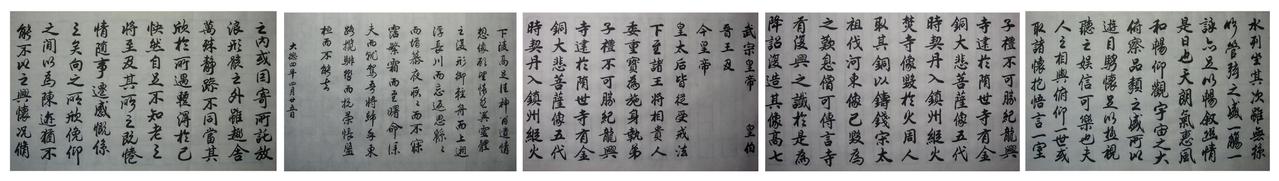 水列坐其次雖無絲
竹管弦之盛一觴一
詠亦足以暢敘幽情
是日也天朗氣惠風
和暢仰觀宇宙之大
俯察品類之盛所以
遊目騁懷足以極視
聽之娛信可樂也夫
人之相與俯仰一世或
取諸懷抱悟言一室
子禮不可勝紀龍興
寺建於隋世寺有金
銅大悲菩薩像五代
時契丹入鎮州縱火
焚寺像毀於火周人
取其銅以鑄錢宋太
祖伐河東像已毀為
之歎息僧可傳言寺
有復興之讖於是為
降詔復造其像高七
武宗皇帝 皇伯
晉王及
今皇帝
皇太后皆從受戒法
下至諸王將相貴人
委重寶為施身執弟
子禮不可勝紀龍興
寺建於隋世寺有金
銅大悲菩薩像五代
時契丹入鎮州縱火
下陵高足往神留遺情
想像顧望懷愁冀靈體
之復形御輕舟而上遡
浮長川而忘返思綿綿
而增慕夜耿耿而不寐
霑繁霜而至曙命僕
夫而就駕吾將歸乎東
路攬騑轡而抗策悵盤
桓而不能去
大德四年四月廿五日
之內或因寄所託放
浪形骸之外雖趣舍
萬殊靜躁不同當其
欣於所遇暫得於己
怏然自足不知老之
將至及其所之既惓
情隨事遷感慨係
之矣向之所欣俛仰
之間以為陳迹猶不
能不以之興懷況脩